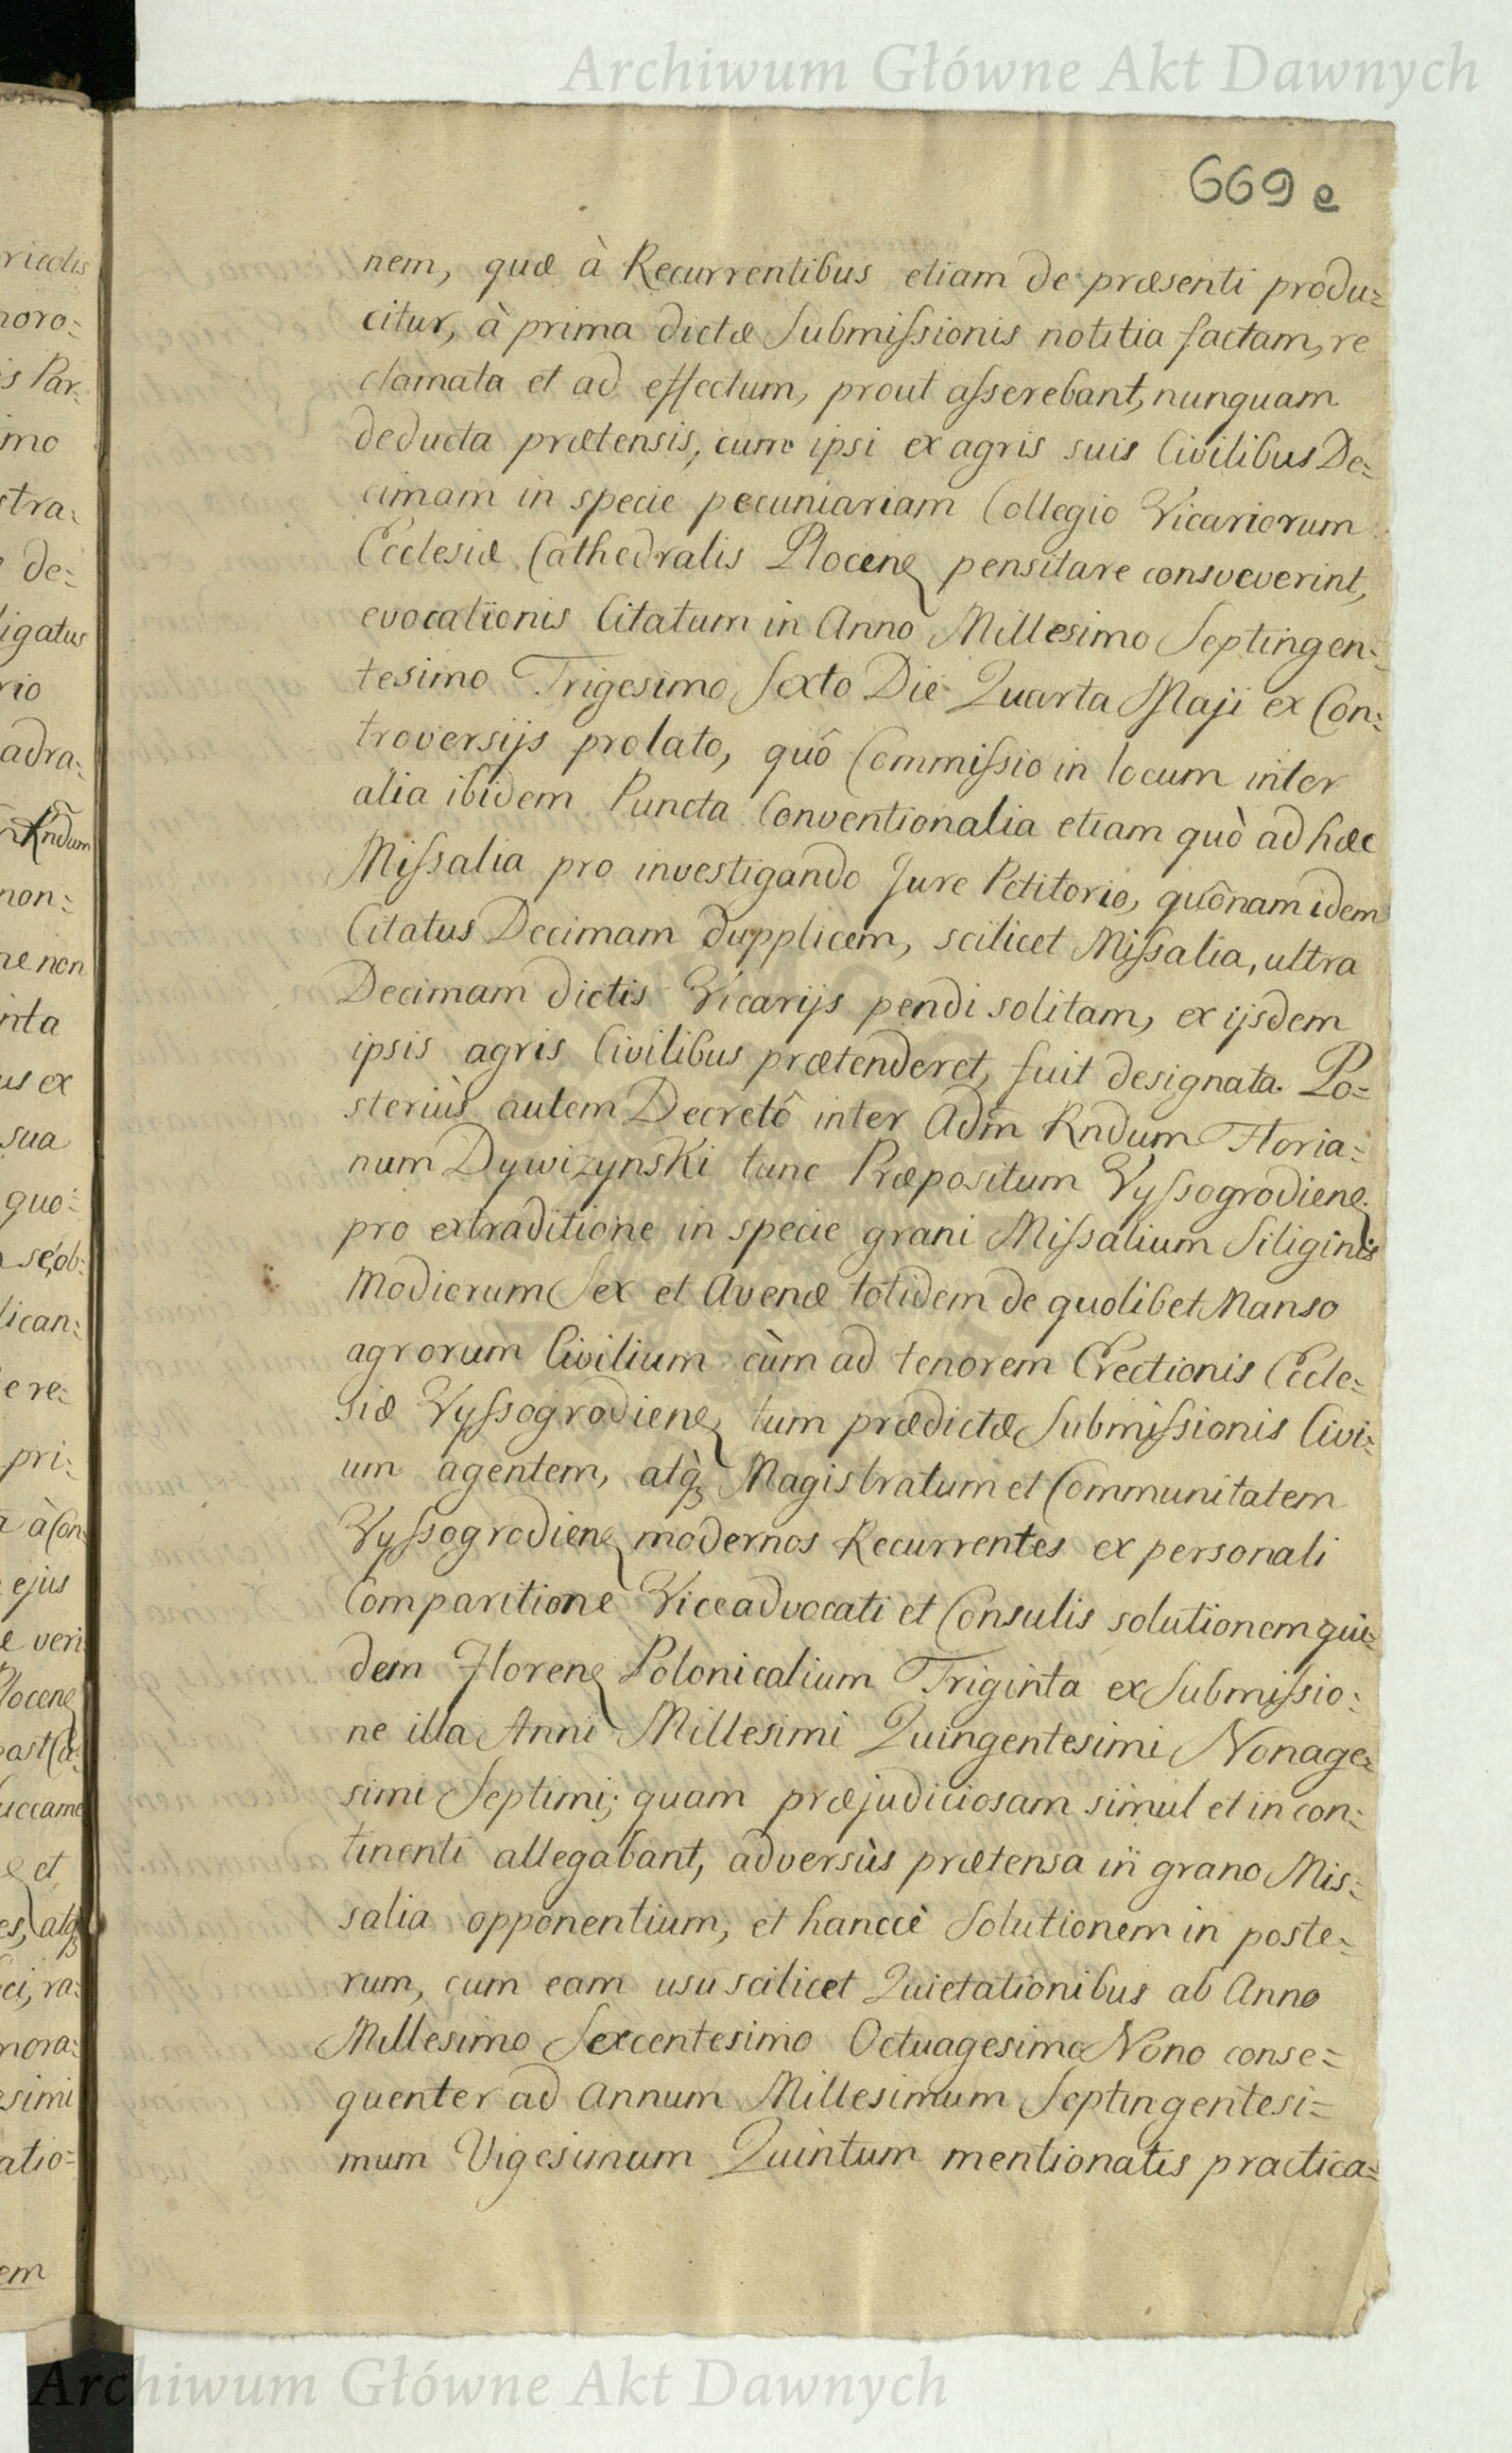 Archiwum Główne Akt Dawnych
669 e
nem, quæ à Recurrentibus etiam de præsenti produ=
citur, à prima dictæ Submissionis notitia factam, re
clamata et ad effectum, prout asserebant, nunquam
deducta prætensis, cum ipsi ex agris suis Civilibus De=
cimam in specie pecuniariam Collegio Vicariorum
Ecclesiæ Cathedralis Plocen pensitare consveverint,
evocationis Citatum in Anno Millesimo Septingen=
tesimo Trigesimo Sexto Die Quarta Maji ex Con=
troversijs prolato, quô Commissio in locum inter
alia ibidem Puncta Conventionalia etiam quò ad hæc
Missalia pro investigando Jure Petitorio, quônam idem
Citatus Decimam dupplicem, scilicet Missalia, ultra
Decimam dictis Vicarijs pendi solitam, ex ijsdem
ipsis agris Civilibus prætenderet, fuit designata. Po=
steriùs autem Decretô inter Adm Rndum Floria=
num Dywizynski tunc Præpositum Vyssogrodien
pro extraditione in specie grani Missalium Siliginis
Modiorum Sex et Avenæ totidem de quolibet Manso
agrorum Civilium cùm ad tenorem Erectionis Eccle=
siæ Vyssogrodien tum prædictæ Submissionis Civi=
um agentem, atq Magistratum et Communitatem
Vyssogrodien modernos Recurrentes ex personali
Comparitione Viceadvocati et Consulis solutionem qui=
dem Floren Polonicalium Triginta ex Submissio=
ne illa Anni Millesimi Quingentesimi Nonage=
simi Septimi; quam præjudiciosam simul et in con=
tinenti allegabant, adversùs prætensa in grano Mis=
salia opponentium, et hancce Solutionem in poste=
rum, cum eam usu scilicet Quietationibus ab Anno
Millesimo Sexcentesimo Octuagesimo Nono conse=
quenter ad Annum Millesimum Septingentesi=
mum Vigesimum Quintum mentionatis practica=
Archiwum Główne Akt Dawnych